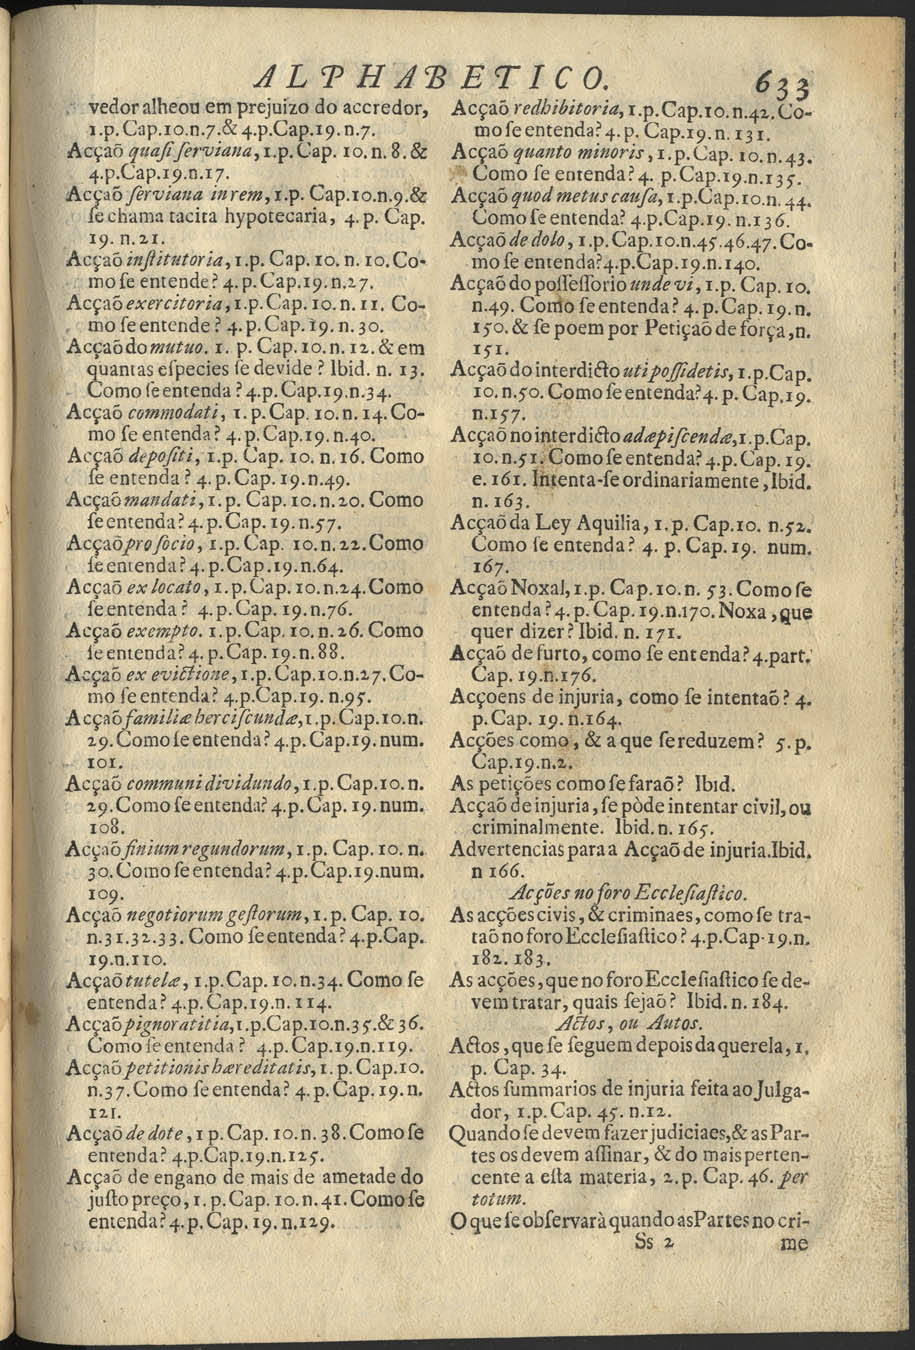 ALPHABETICO. 633
vedor alheou em prejuizo do accredor,
1.p.Cap.10.n.7.& 4.p.Cap.19.n.7.
Acçaõ quaſi ſerviana, 1.p. Cap. 10. n. 8. &
4.p.Cap.19.n.17.
Acçaõ ſerviana in rem, 1.p. Cap.10.n.9.&
ſe chama tacita hypotecaria, 4. p. Cap.
19. n.21.
Acçaõ inſtitutoria, 1.p. Cap. 10. n. 10. Co-
mo ſe entende? 4. p. Cap.19.n.27.
Acçaõ exercitoria, 1.p. Cap. 10. n. 11. Co-
mo ſe entende? 4. p. Cap. 19. n. 30.
Acçaõ do mutuo. 1. p. Cap. 10. n. 12. & em
quantas eſpecies ſe devide? Ibid. n. 13.
Como ſe entenda? 4.p.Cap.19.n.34.
Acçaõ commodati, 1. p. Cap. 10. n. 14. Co-
mo ſe entenda? 4. p. Cap. 19. n.40.
Acçaõ depoſiti, 1.p. Cap. 10. n. 16. Como
ſe entenda? 4. p. Cap. 19.n.49.
Acçaõ mandati, 1. p. Cap. 10. n.20. Como
ſe entenda? 4. p. Cap. 19. n.57.
Acçaõ pro ſocio, 1.p. Cap. 10. n. 22. Como
ſe entenda? 4.p.Cap.19.n.64.
Acçaõ ex locato, 1.p. Cap. 10.n.24. Como
ſe entenda? 4.p. Cap. 19.n.76.
Acçaõ exempto. 1. p. Cap. 10. n. 26. Como
ſe entenda? 4. p. Cap. 19. n. 88.
Acçaõ ex evictione, 1.p. Cap.10.n.27. Co-
mo ſe entenda? 4.p.Cap.19. n.95.
Acçaõ familiæ herciſcundæ, 1.p. Cap.10.n.
29. Como ſe entenda? 4.p. Cap.19. num.
101.
Acçaõ communi dividundo, 1.p. Cap.10. n.
29. Como ſe entenda? 4.p. Cap. 19. num.
108.
Acçaõ finium regundorum, 1.p. Cap. 10. n.
30. Como ſe entenda? 4.p. Cap.19.num.
109.
Acçaõ negotiorum geſtorum, 1. p. Cap. 10.
n.31.32.33. Como ſe entenda? 4.p.Cap.
19.n.110.
Acçaõ tutelæ, 1.p. Cap. 10. n.34. Como ſe
entenda? 4.p. Cap.19.n. 114.
Acçaõ pignoratitia, 1.p.Cap.10.n.35.& 36.
Como ſe entenda? 4.p. Cap.19.n.119.
Acçaõ petitionis hæreditatis, 1. p. Cap.10.
n.37. Como ſe entenda? 4. p. Cap. 19. n.
121.
Acçaõ de dote, 1 p. Cap. 10.n. 38. Como ſe
entenda? 4.p.Cap.19.n.125.
Acçaõ de engano de mais de ametade do
juſto preço, 1. p. Cap. 10. n. 41. Como ſe
entenda? 4. p. Cap. 19. n.129.
Acçaõ redhibitoria, 1.p.Cap.10. n.42. Co-
mo ſe entenda? 4. p. Cap.19. n. 131.
Acçaõ quanto minoris, 1.p. Cap. 10. n.43.
Como ſe entenda? 4. p. Cap.19.n.135.
Acçaõ quod metus cauſa, 1.p.Cap.10.n. 44.
Como ſe entenda? 4.p.Cap.19. n.136.
Acçaõ de dolo, 1. p. Cap.10.n.45.46.47. Co-
mo ſe entenda? 4.p.Cap.19.n.140.
Acçaõ do poſſeſſorio unde vi, 1.p. Cap. 10.
n.49. Como ſe entenda? 4. p. Cap. 19. n.
150. & ſe poem por Petiçaõ de força, n.
151.
Acçaõ do interdicto uti poſſidetis, 1.p.Cap.
10. n.50. Como ſe entenda? 4. p. Cap.19.
n.157.
Acçaõ no interdicto adæpiſcendæ, 1.p.Cap.
10. n.51. Como ſe entenda? 4.p.Cap. 19.
e. 161. Intenta-ſe ordinariamente, Ibid.
n. 163.
Acçaõ da Ley Aquilia, 1. p. Cap.10. n.52.
Como ſe entenda? 4. p. Cap. 19. num.
167.
Acçaõ Noxal, 1.p. Cap.10.n. 53. Como ſe
entenda? 4. p. Cap. 19.n.170. Noxa, que
quer dizer? Ibid. n. 171.
Acçaõ de furto, como ſe entenda? 4.part.
Cap. 19.n.176.
Acçoens de injuria, como ſe intentaõ? 4.
p. Cap. 19. n.164.
Acções como, & a que ſe reduzem? 5. p.
Cap.19.n.2.
As petições como ſe faraõ? Ibid.
Acçaõ de injuria, ſe pòde intentar civil, ou
criminalmente. Ibid. n. 165.
Advertencias para a Acçaõ de injuria. Ibid.
n 166.
Acções no foro Eccleſiaſtico.
As acções civis, & criminaes, como ſe tra-
taõ no foro Eccleſiaſtico? 4.p.Cap.19.n.
182. 183.
As acções, que no foro Eccleſiaſtico ſe de-
vem tratar, quais ſejaõ? Ibid. n. 184.
Actos, ou Autos.
Actos, que ſe ſeguem depois da querela, 1.
p. Cap. 34.
Actos ſummarios de injuria feita ao Julga-
dor, 1.p. Cap. 45. n.12.
Quando ſe devem fazer judiciaes, & as Par-
tes os devem aſſinar, & do mais perten-
cente a eſta materia, 2. p. Cap. 46. per
totum.
O que ſe obſervarà quando as Partes no cri-
Ss 2 me